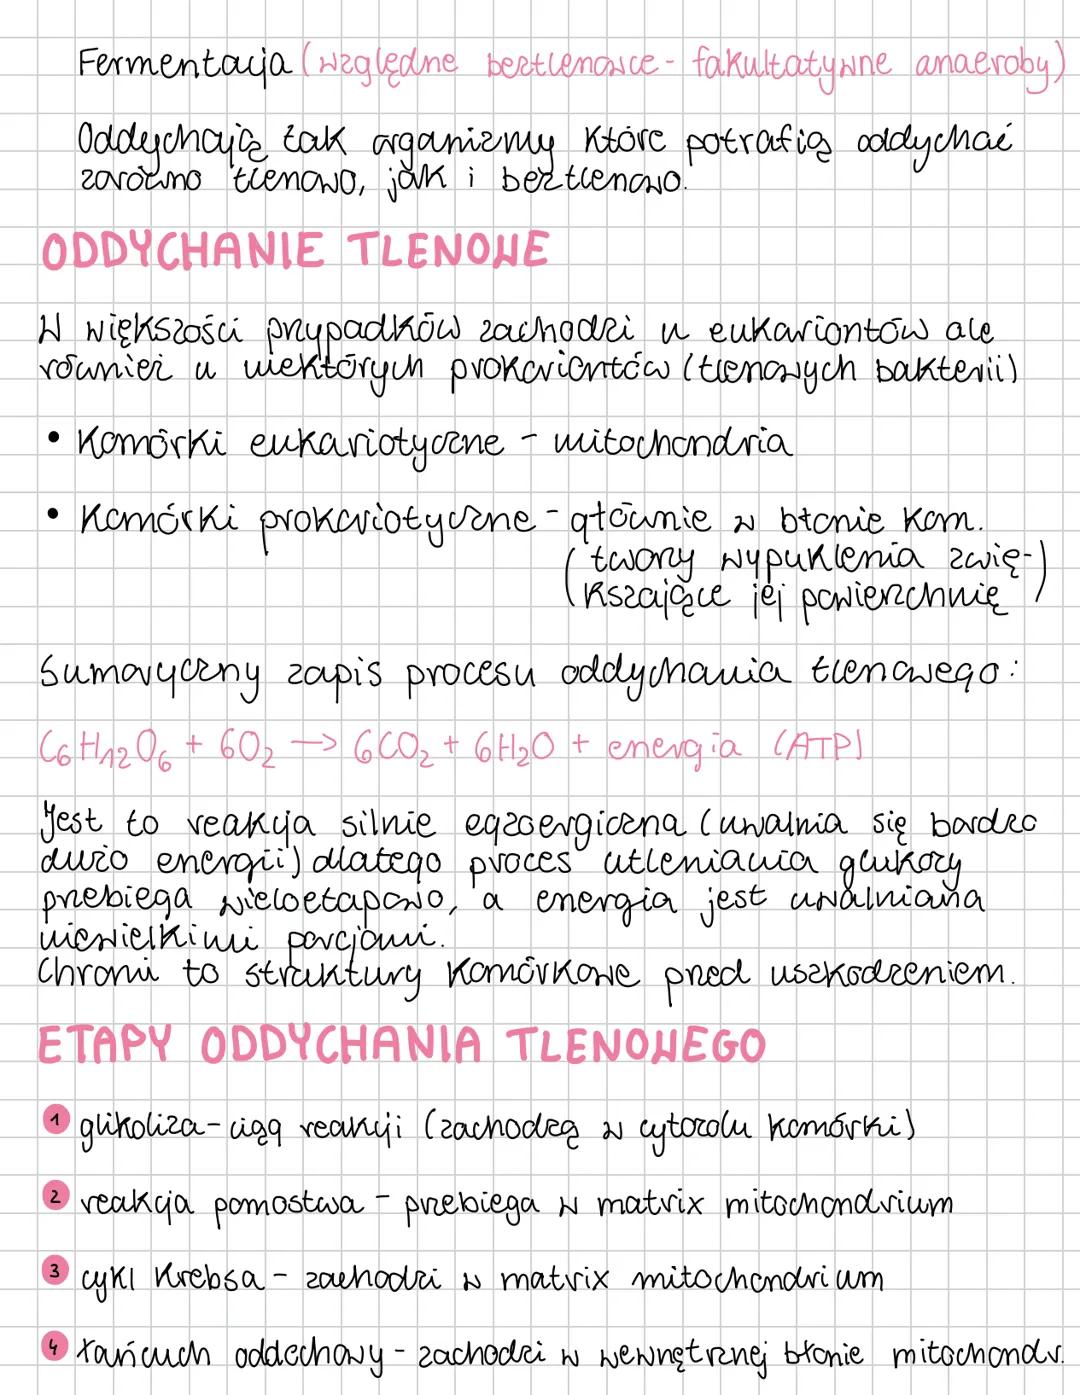 Fermentacja (względne beztlenowce - fakultatywne anaeroby)
Oddychają tak organizmy które potrafią oddychać
zarówno tlenowo, jak i beztlenowo.
ODDYCHANIE TLENOWE
W większości przypadków zachodzi u eukariontów ale
również u niektórych prokariontów (tlenowych bakterii)
• Komórki eukariotyczne - mitochondria
• Komórki prokariotyczne - głównie w błonie kom.
(tworzy wypuklenia zwię-)
(kszające jej powierzchnię)
Sumaryczny zapis procesu oddychania tlenowego:
C6H12O6 + 6O2 → 6CO2 + 6H2O + energia (ATP)
Jest to reakcja silnie egzoergiczna (uwalnia się bardzo
dużo energii) dlatego proces utleniania glukozy
przebiega wieloetapowo, a energia jest uwalniana
niewielkimi porcjami.
Chroni to struktury komórkowe przed uszkodzeniem.
ETAPY ODDYCHANIA TLENOWEGO
1 glikoliza - ciąg reakcji (zachodzą w cytozolu komórki)
2 reakcja pomostwa - przebiega w matrix mitochondrium
3 cykl Krebsa - zachodzi w matrix mitochondrium
4 łańcuch oddechowy - zachodzi w wewnętrznej błonie mitochondr.